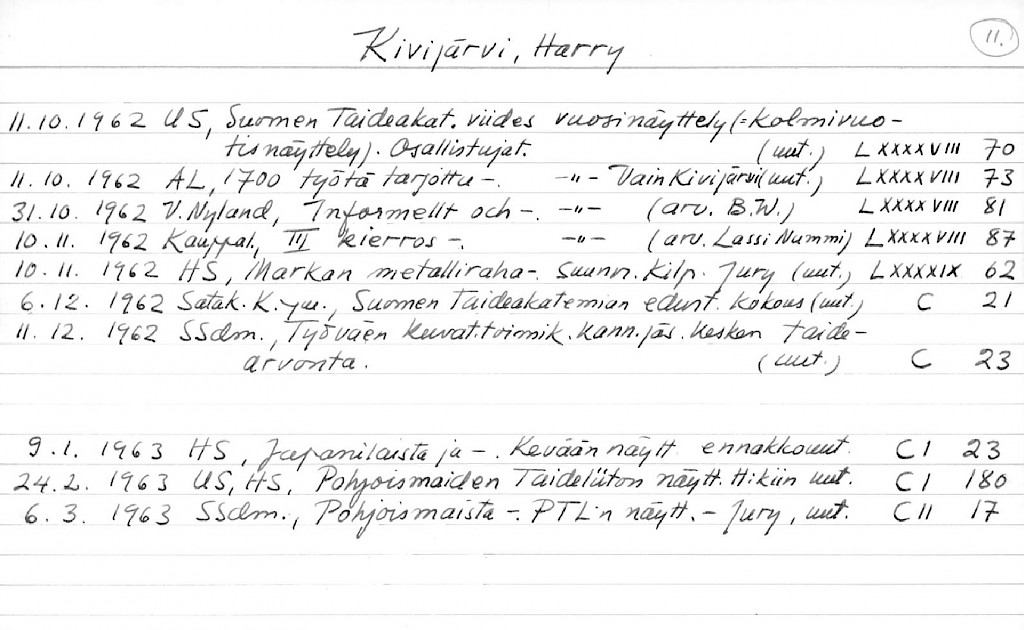 Kivijärvi, Harry
11.
11.10.1962 US, Suomen Taideakat. viides vuosinäyttely (=Kolmivuo-
tisnäyttely). Osallistujat. (uut.) LXXXXVIII 70
11.10. 1962 AL, 1700 työtä tarjottu -. -"- Vain Kivijärvi (uut.) LXXXXVIII 73
31.10. 1962 V. Nyland, Informellt och -. -"- (arv. B.W.) LXXXXVIII 81
10.11. 1962 Kauppal., III kierros -. -"- (arv. Lassi Nummi) LXXXXVIII 87
10.11. 1962 HS, Markan metalliraha-. Suunn. Kilp. Jury (uut.) LXXXXIX 62
6.12. 1962 Satak. K., Suomen Taideakatemian edust. kokous (uut.) C 21
11.12. 1962 SSdm., Työväen kuvat.toimik. kann.jäs. kesken taide-
arvonta. (uut.) C 23
9.1. 1963 HS, Japanilaista ja -. Kevään näytt. ennakkouut. CI 23
24.2. 1963 US, HS, Pohjoismaiden Taideliiton näytt. H:kiin uut. CI 180
6.3. 1963 SSdm., Pohjoismaista -. PTL:n näytt. - Jury, uut. CII 17